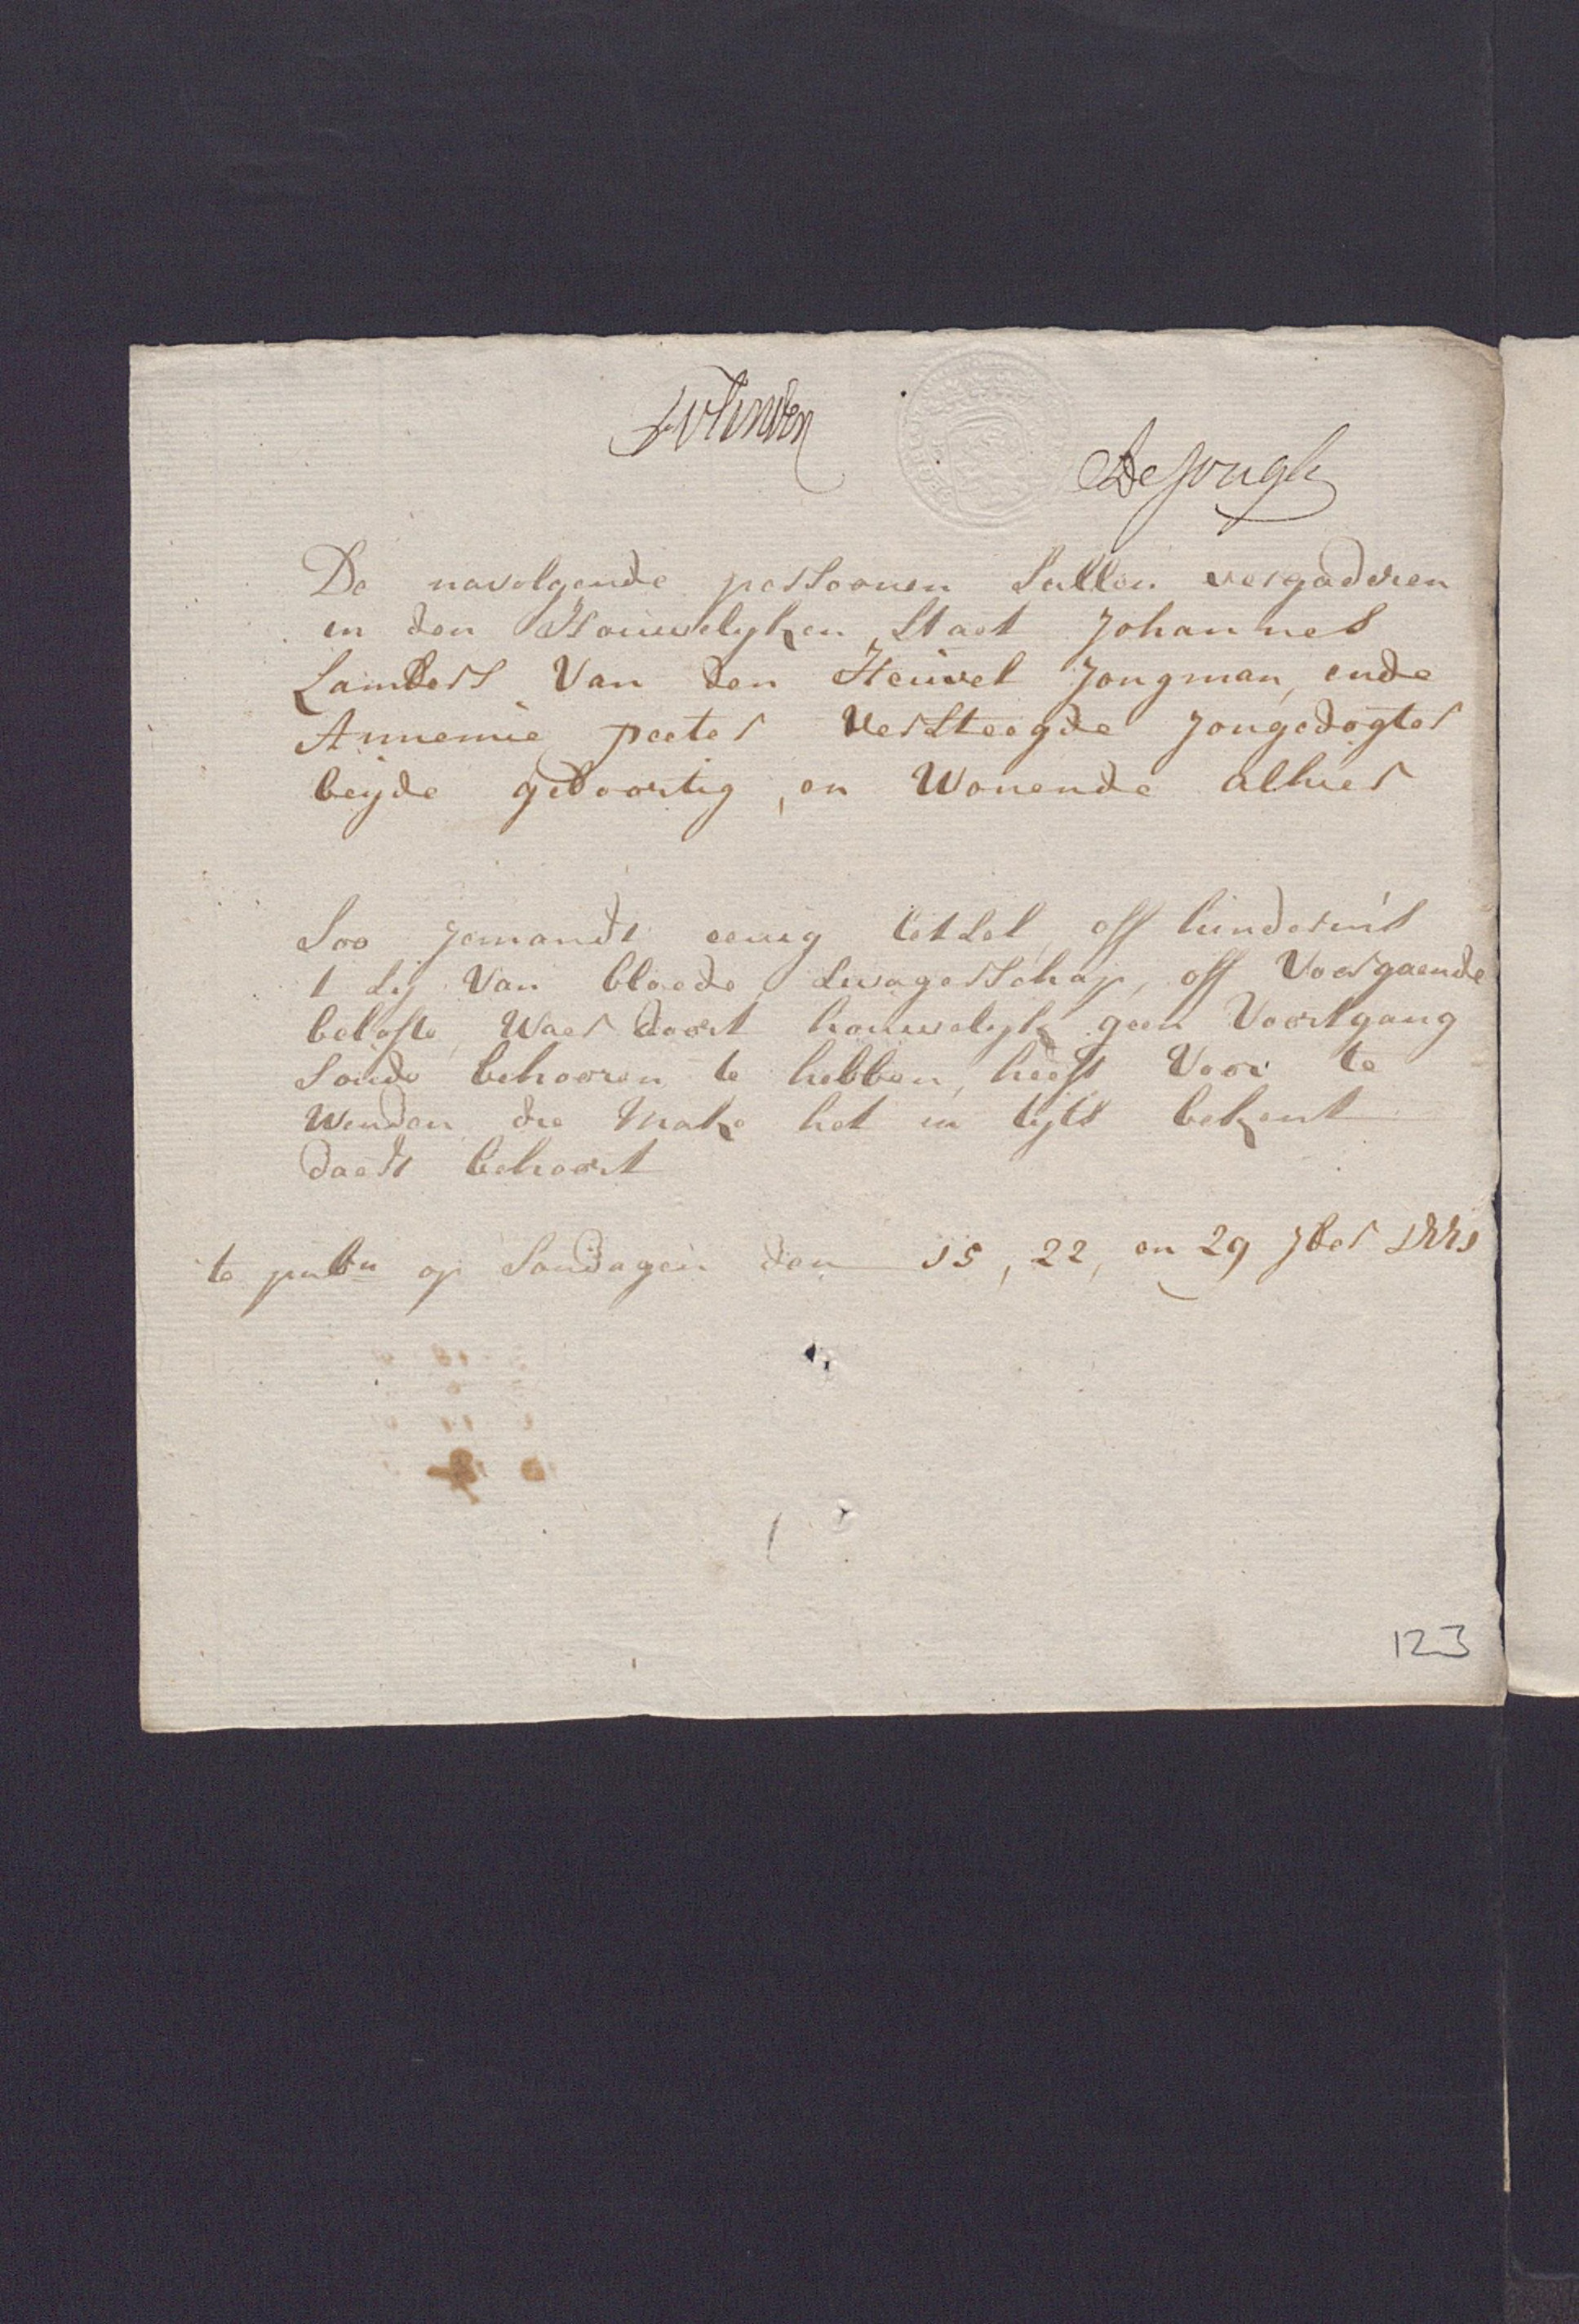 De Jongh
De navolgende persoonen sullen vergadren
in den Houwelyken staet Johannes
Lambers van den Heuvel Jongman, ende
Annemie peeter Versteegde Jongedogter
beyde geboortig, en Wonende alhier
Soo jemandt eenig letsel, off hindernis
't sy van bloede, swagerschap, off Voorgaende
belofte, Waer doort houwelyk geen Voortgang
soude behooren te hebben, heeft Voor te
Wenden die make het in tyts bekent
daert behoort
te publn op Sondagen den 15, 22, en 29 7ber
123